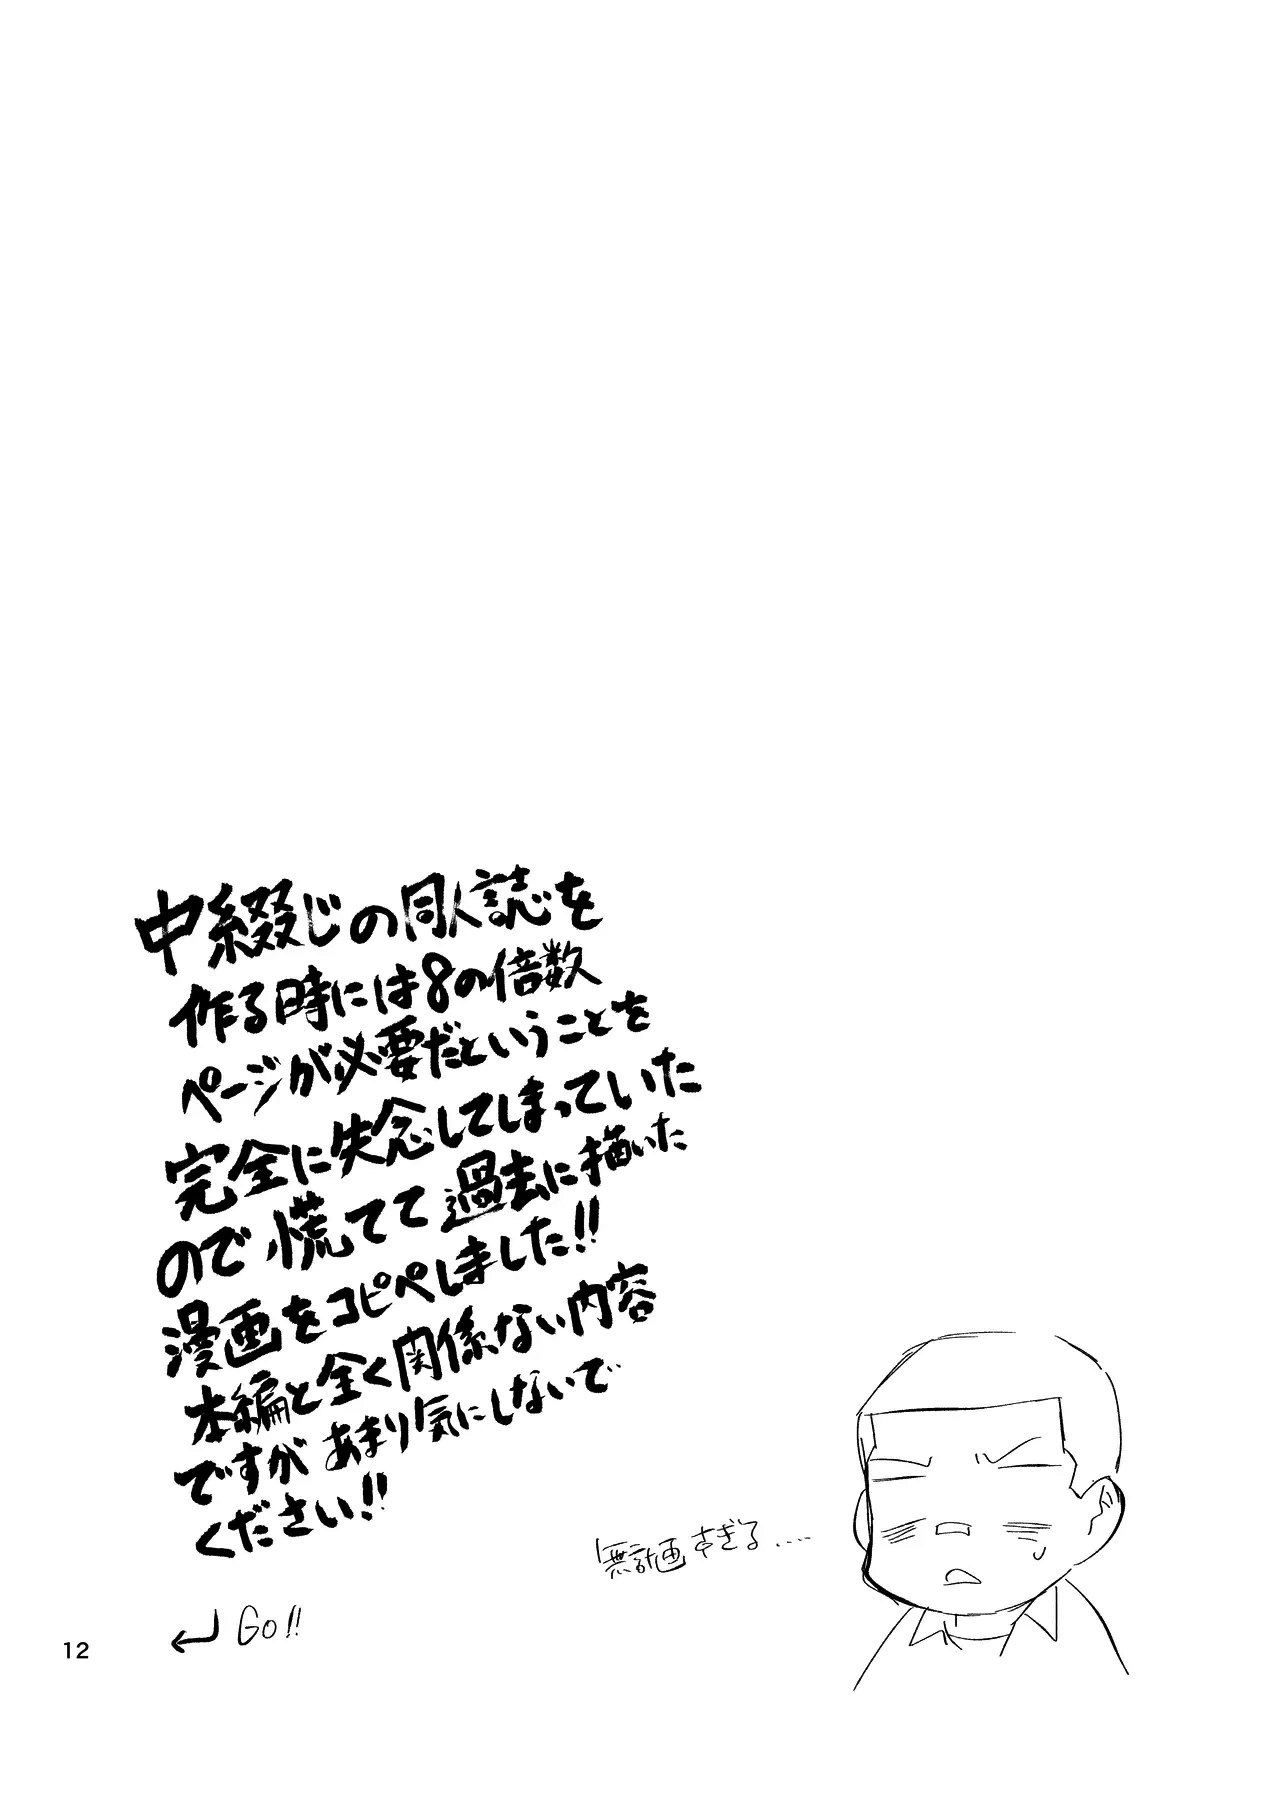 中綴じの同人誌を
作る時には8の倍数
ページが必要だということを
完全に失念してしまっていた
ので慌てて過去に描いた
漫画をコピペしました!!
本編と全く関係ない内容
ですがあまり気にしないで
ください!!
無計画すぎる....
Go!!
12